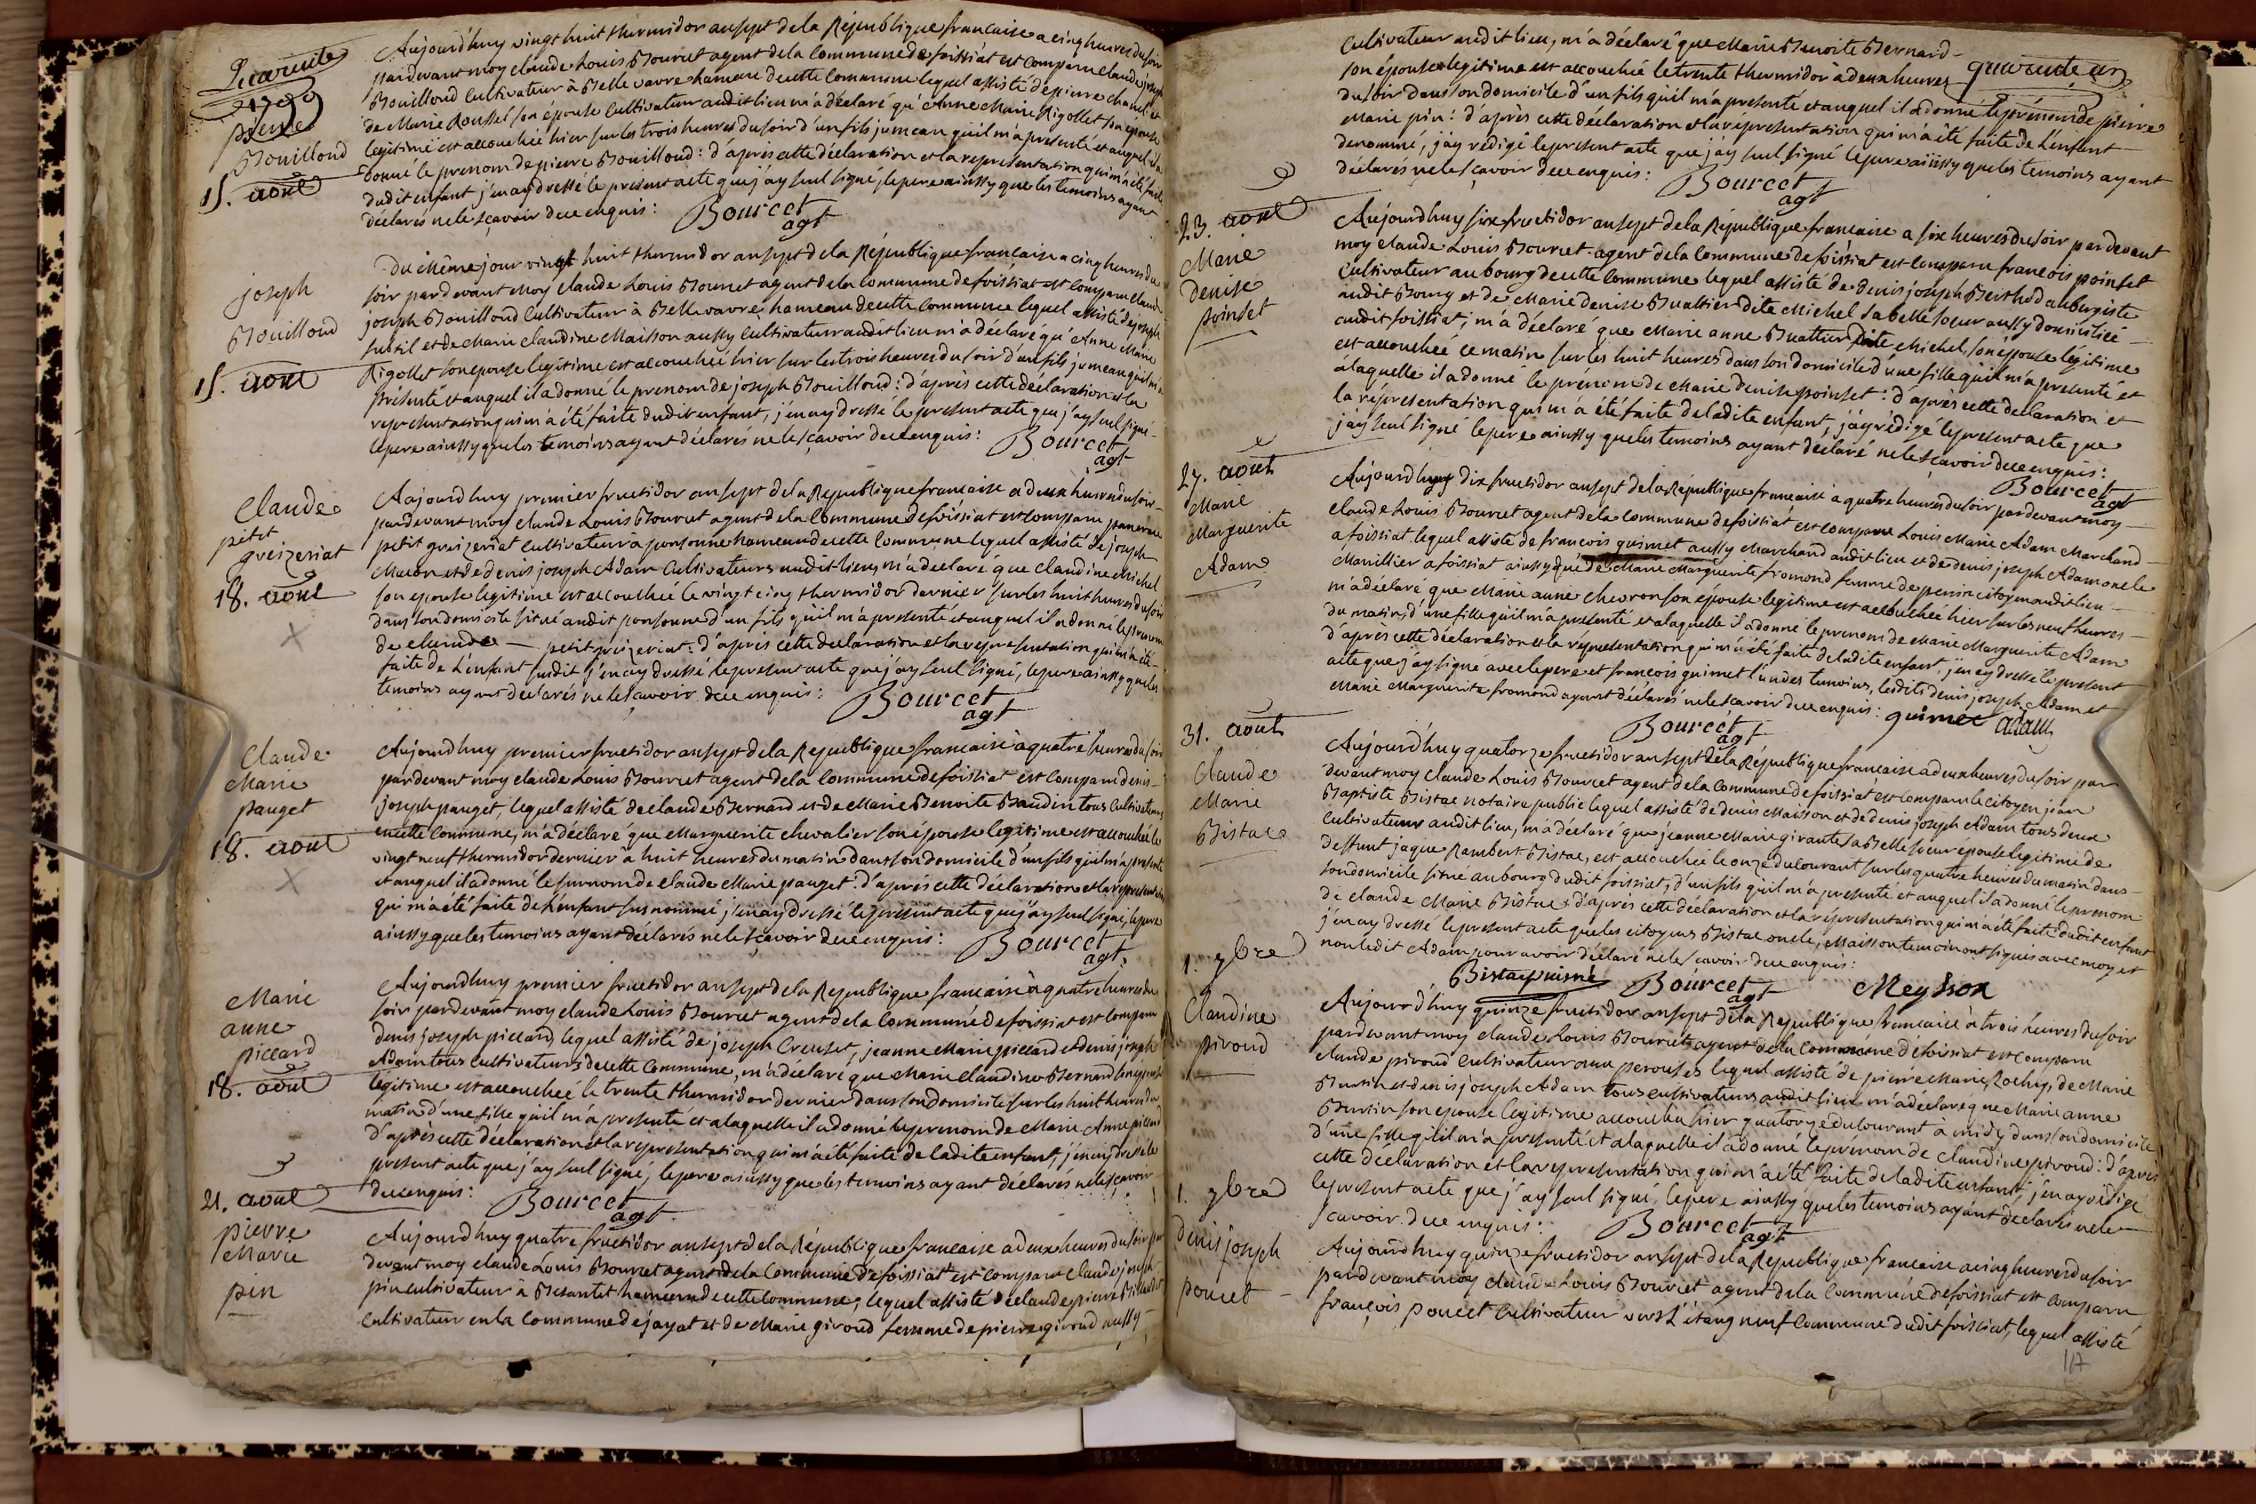 Quarante
1799
pierre
Bouilloud
15. aout
Aujourd'huy vingt huit thermidor an sept de la République francaise a cinq heures du soir
pardevant moy claude Louis Bourcet agent de la Commune de foissiat est comparu claude joseph
Bouilloud Cultivateur à Belle vavre hameau de cette Commune lequel assisté de pierre chanel et
de Marie Roussel son épouse Cultivateur audit lieu m'a déclaré qu'Anne Marie Rigollet son epouse
legitime est accouchée hier sur les trois heures du soir d'un fils jumeau quil m'a presenté et auquel il a
donné le prenom de pierre Bouilloud : d'après cette déclaration et la representation qui m'a été faite
dudit enfant j'en ay dressé le présent acte que j'ay seul signé, le pere ainssy que les temoins ayant
déclarés ne le sçavoir de ce enquis :
Bourcet
agt
joseph
Bouilloud
15. aout
Du Même jour vingt huit thermidor an sept de la République francaise a cinq heures du
soir pardevant Moy claude Louis Bourcet agent de la commune de foissiat est comparu claude
joseph Bouilloud Cultivateur à Bellevavre, hameau de cette Commune lequel assisté de joseph
subtil et de Marie claudine Maisson aussy Cultivateur audit lieu m'a déclaré qu'Anne Marie
Rigollet son epouse legitime est accouchée hier sur les trois heures du soir d'un fils jumeau quil m'a
présenté et auquel il a donné le prenom de joseph Bouilloud : d'après cette déclaration et la
representation qui m'a été faite dudit enfant, j'en ay dressé le present acte que j'ay seul signé
le pere ainssy que les temoins ayant déclarés ne le sçavoir de ce enquis :
Bourcet
agt
Claude
petit
greizeriat
18. aout
Aujourd'huy premier fructidor an sept de la Republique francaise a deux heures du soir
pardevant moy claude Louis Bourcet agent de la Commune de foissiat est comparu
petit greizeriat cultivateur à ponsonne hameau de cette Commune lequel assisté de joseph
et de denis joseph Adam Cultivateurs audit lieu, m'a déclaré que Claudine Michel
son epouse legitime est accouchée le vingt cinq thermidor dernier sur les huit heures du soir
dans son domicile situé audit ponsonne d'un fils quil m'a presenté et auquel il a donné le prenom
de claude petit greizeriat : d'après cette déclaration et la representation qui m'a été
faite de L'enfant susdit j'en ay dressé le present acte que j'ay seul signé, le pere ainssy que les
temoins ayant déclarés ne le sçavoir de ce enquis :
Bourcet
agt
Claude
Marie
pauget
18. aout
Aujourd'huy premier fructidor an sept de la Republique francaise à quatre heures du soir
pardevant moy claude Louis Bourcet agent de la Commune de foissiat est comparu denis
joseph pauget, lequel assisté de claude Bernard et de Marie Benoite Baudin tous Cultivateurs
en cette Commune, m'a déclaré que Marguerite chevalier son épouse legitime est accouchée le
vingt neuf thermidor dernier à huit heures du matin dans son domicile d'un fils quil m'a presenté
et auquel il a donné le surnom de claude Marie pauget : d'après cette déclaration et la representation
qui m'a été faite de L'enfant susnommé j'en ay dressé le present acte que j'ay seul signé, le pere
ainssy que les temoins ayant déclarés ne le sçavoir de ce enquis :
Bourcet
agt
Marie
anne
piccard
18. aout
Aujourd'huy premier fructidor an sept de la Republique francaise à quatre heures du
soir pardevant moy claude Louis Bourcet agent de la Commune de foissiat est comparu
denis joseph piccard, lequel assisté de joseph Creuset, jeanne Marie piccard et denis joseph
Adam tous Cultivateurs de cette Commune, m'a déclaré que Marie claudine Bernard son epouse
légitime est accouchée le trente thermidor dernier dans son domicile sur les huit heures du
matin d'une fille quil m'a presenté et a laquelle il a donné le prenom de Marie Anne piccard
D'après cette déclaration et la representation qui m'a été faite de la dite enfant, j'en ay dressé le
present acte que j'ay seul signé, le pere ainssy que les temoins ayant déclarés ne le sçavoir
de ce enquis :
Bourcet
agt
21. aout
pierre
Marie
pin
Aujourd'huy quatre fructidor an sept de la République francaise a deux heures du soir par
devant moy claude Louis Bourcet agent de la Commune de foissiat est comparu Claude joseph
pin cultivateur à Besantet hameau de cette Commune, lequel assisté de claude pierre
Cultivateur en la Commune de jayat et de Marie giroud femme de pierre giroud aussy
quarante un
Cultivateur audit lieu, m'a déclaré que Marie Benoite Bernard
son épouse legitime est accouchée le trente thermidor à deux heures
du soir dans son domicile d'un fils quil m'a presenté et auquel il a donné le prenom de pierre
Marie pin : d'après cette déclaration et la representation qui m'a été faite de L'enfant
denommé, j'ay redigé le present acte que j'ay seul signé le pere ainssy que les temoins ayant
déclarés ne le sçavoir de ce enquis :
Bourcet
agt
23. aout
Marie
denise
poinset
Aujourd'huy six fructidor an sept de la République francaise a six heures du soir pardevant
moy claude Louis Bourcet agent de la Commune de foissiat est comparu francois poinset
Cultivateur au bourg de cette Commune lequel assisté de denis joseph Berthod aubergiste
audit Bourg et de Marie denise Buattier dite Michel sa belle soeur aussy domiciliée
audit foissiat, m'a déclaré que Marie anne Buattier dite Michel, son épouse légitime
est accouchée ce matin sur les huit heures dans son domicile d'une fille quil m'a presenté et
a laquelle il a donné le prénom de Marie denise poinset : d'après cette déclaration et
la réprésentation qui m'a été faite de ladite enfant, j'ay rédigé le present acte que
j'ay seul signé le pere ainssy que les temoins ayant déclaré ne le sçavoir de ce enquis :
Bourcet
agt
27. aout
Marie
Marguerite
Adam
Aujourd'huy dix fructidor an sept de la Republique francaise à quatre heures du soir pardevant moy
claude Louis Bourcet agent de la Commune de foissiat est comparu Louis Marie Adam Marchand
a foissiat lequel assisté de francois guimet aussy Marchand audit lieu et de denis joseph Adam oncle
Manillier a foissiat ainssy que de Marie Marguerite fromond femme de perrin citoyen audit lieu
m'a déclaré que Marie anne chevron son epouse legitime est accouchée hier sur les neuf heures
du matin, d'une fille quil m'a presenté et a laquelle il a donné le prenom de Marie Marguerite Adam
d'après cette déclaration et la représentation qui m'a été faite de ladite enfant j'en ay dressé le present
acte que j'ay signé avec le pere et francois guimet l'un des temoins, lesdits denis joseph Adam et
Marie Marguerite fromond ayant déclarés ne le sçavoir de ce enquis :
guimet
adam
Bourcet
agt
31. aout
Claude
Marie
Bistac
Aujourd'huy quatorze fructidor an sept de la République francaise a deux heures du soir par
devant moy Claude Louis Bourcet agent de la Commune de foissiat est comparu le citoyen jean
Baptiste Bistac notaire public lequel assisté de denis Maisson et de denis joseph Adam tous deux
cultivateurs audit lieu, m'a déclaré que jeanne Marie girante sa Belle soeur epouse legitime de
deffunt jaque Rambert Bistac, est accouchée le onze du courant sur les quatre heures du matin dans
son domicile situé au bourg dudit foissiat, d'un fils quil m'a presenté et auquel il a donné le prenom
de claude Marie Bistac : d'après cette déclaration et la réprésentation qui m'a été faite dudit enfant
j'en ay dressé le present acte que les citoyens Bistac oncle, Maisson temoin ont signés avec moy et
non ledit Adam pour avoir déclaré ne le sçavoir de ce enquis :
Bistac puisné
Bourcet
agt
Meysson
1. 7bre
Claudine
piroud
Aujourd'huy quinze fructidor an sept de la Republique francaise à trois heures du soir
pardevant moy claude Louis Bourcet agent de la Commune de foissiat est comparu
claude piroud Cultivateur aux perouses lequel assisté de pierre Marie Rochy, de Marie
Burtin et denis joseph Adam tous cultivateurs audit lieu m'a déclaré que Marie anne
Burtin son epouse legitime accoucha hier quatorze du courant a midy dans son domicile
d'une fille quil m'a presenté et a laquelle il a donné le prénom de claudine piroud : d'apres
cette déclaration et la representation qui m'a été faite de ladite enfant, j'en ay rédigé
le present acte que j'ay seul signé, le pere ainssy que les temoins ayant déclarés ne le
sçavoir de ce enquis :
Bourcet
agt
1. 7bre
Denis joseph
poncet
Aujourd'huy quinze fructidor an sept de la Republique francaise a cinq heures du soir
pardevant moy claude Louis Bourcet agent de la Commune de foissiat est comparu
françois poncet Cultivateur vers L'étang neuf Commune dudit foissiat, lequel assisté
117